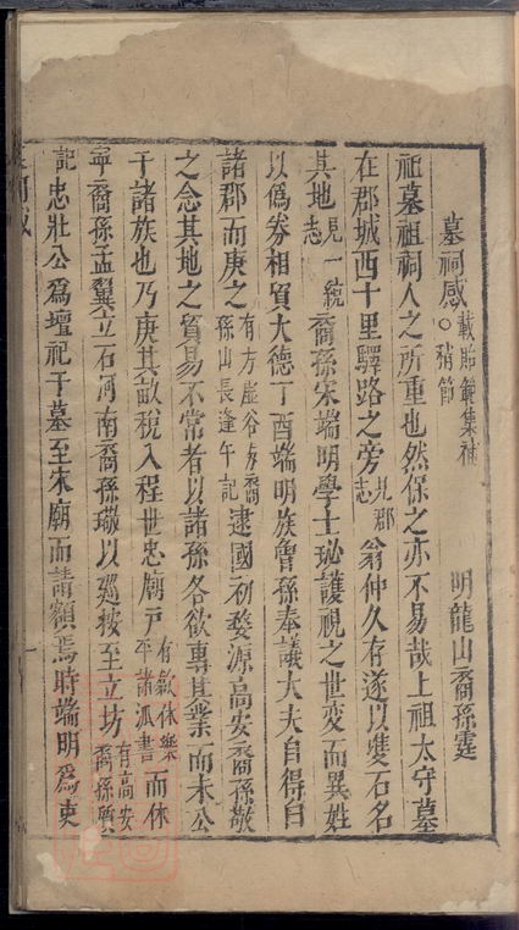 墓祠感○載貽範集補稍節 明龍山裔孫霆
祖墓祖祠人之所重也然保之亦不易哉上祖太守墓
在郡城西十里驛路之旁見郡志翁仲久存遂以雙石名
其地見一統志裔孫宋端明學士珌護視之世變而異姓
以僞券相貿大德丁酉端明族魯孫奉議大夫自得白
諸郡而庚之有方虛谷及裔孫山長逢午記逮國初婺源高安裔孫敬
之念其地之貿易不常者以諸孫各欲專其業而未公
于諸族也乃庚其畝稅入程世忠廟户有歙休樂平諸派書而休
寧裔孫孟翼立石河南裔孫璥以巡按至立坊有高安裔孫質
記忠壯公爲壇祀于墓至宋廟而請額焉時端明爲吏